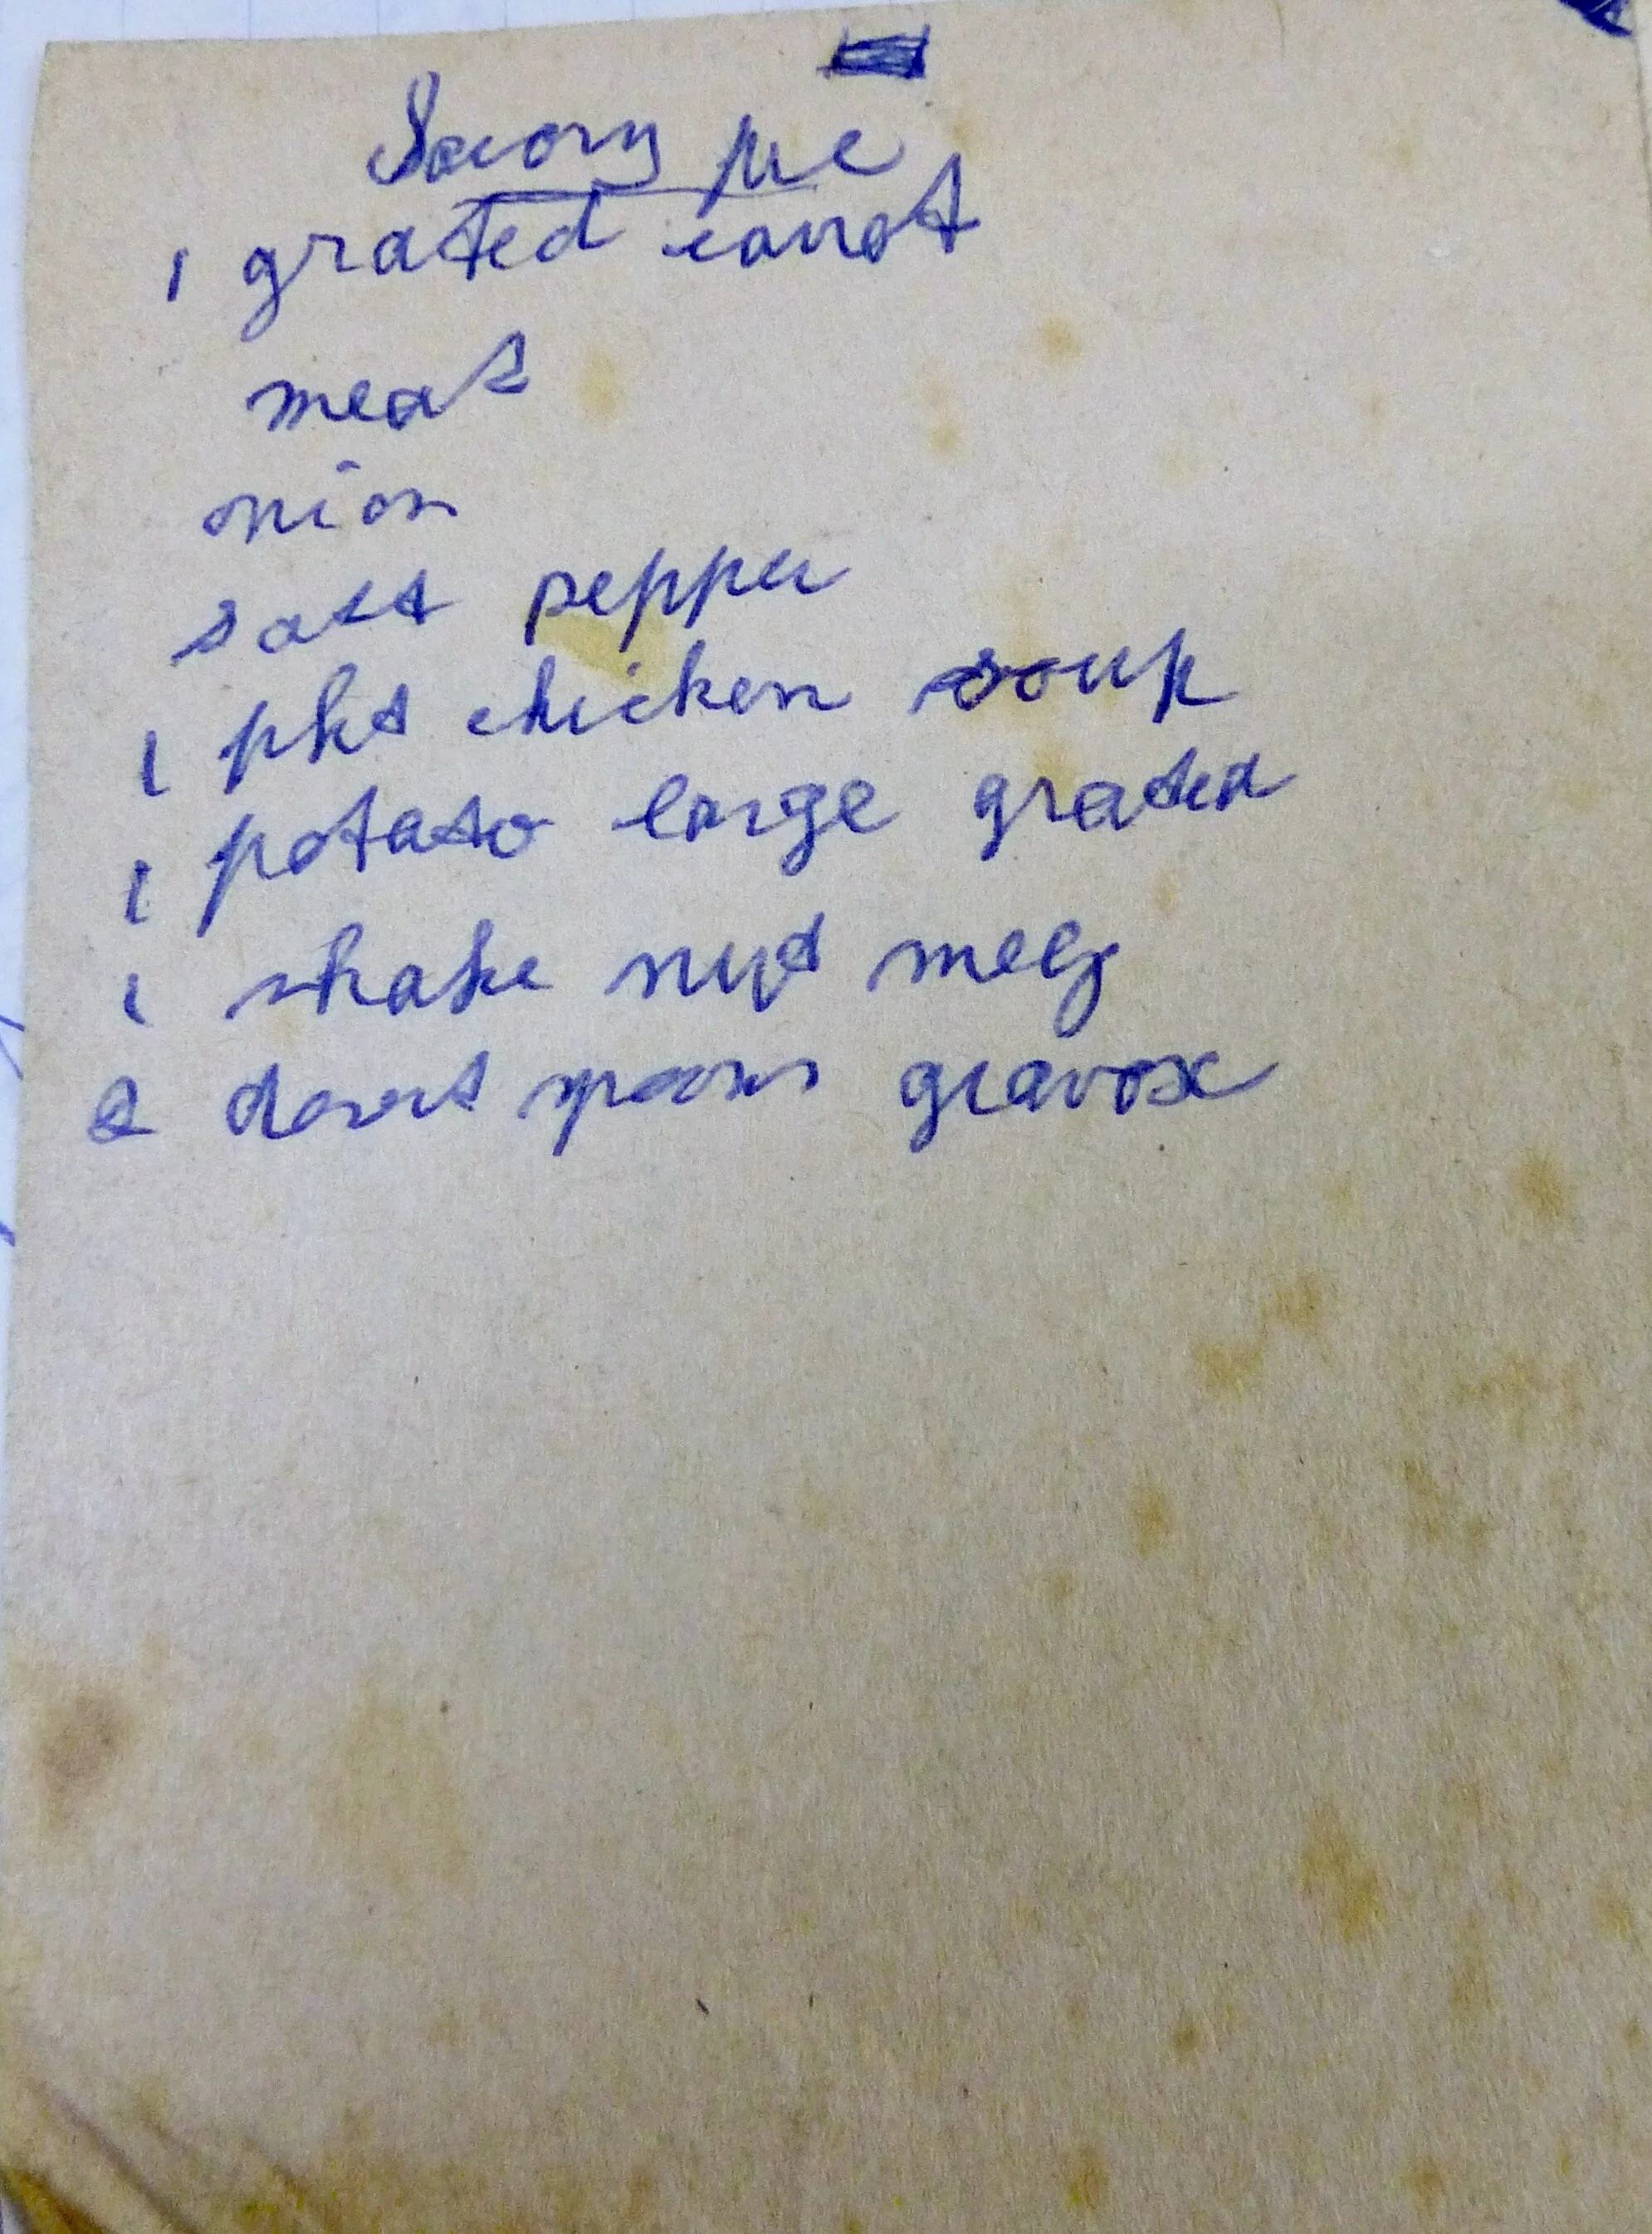 Savory pie
1 grated carrot
meat
onion
salt pepper
1 pkt chicken soup
1 potato large grated
1 shake nut meg
2 desert spoons gravox